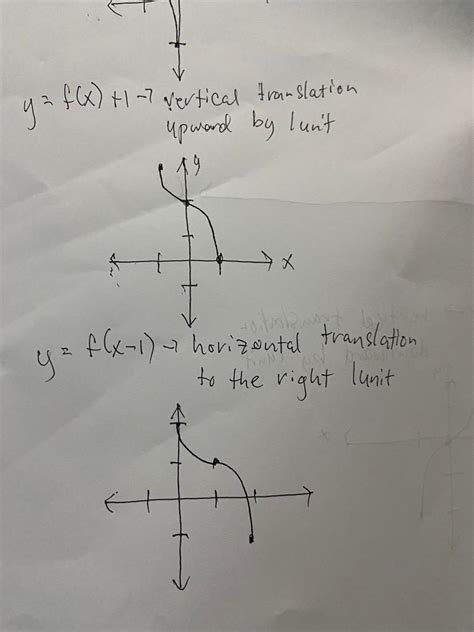 y = f(x) +1 → vertical translation
upward by 1 unit
y
x
y = f(x-1) → horizontal translation
to the right 1unit